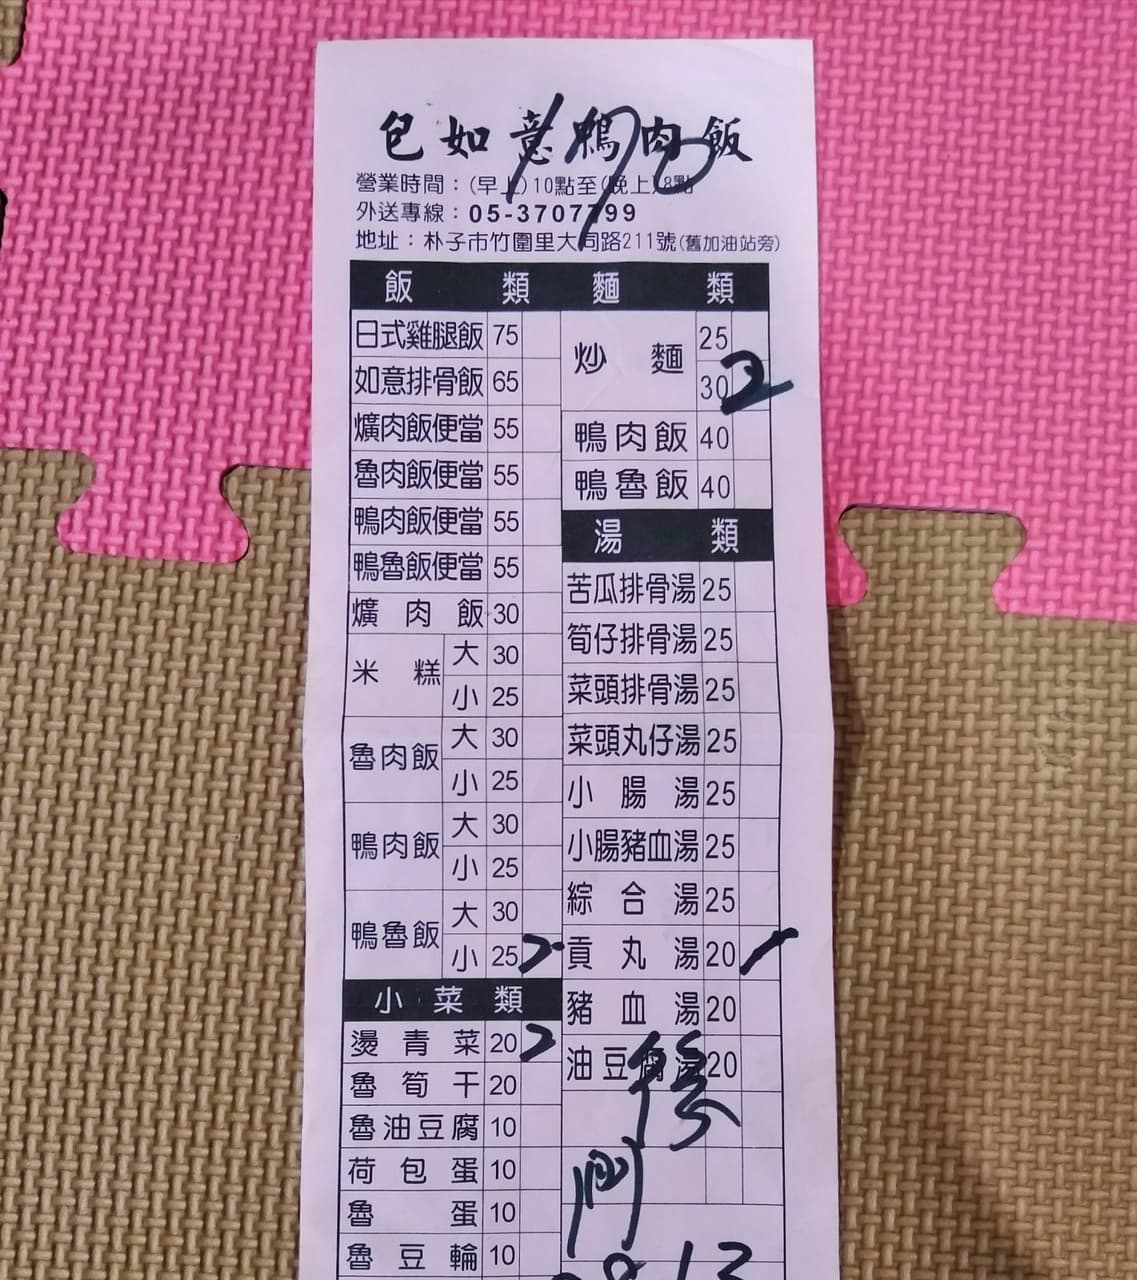 包如意鴨肉飯
190
營業時間：(早上)10點至(晚上)8點
外送專線：05-3707799
地址：朴子市竹圍里大同路211號(舊加油站旁)
飯 類
日式雞腿飯 75
如意排骨飯 65
爌肉飯便當 55
魯肉飯便當 55
鴨肉飯便當 55
鴨魯飯便當 55
爌肉飯 30
米糕 大 30
小 25
魯肉飯 大 30
小 25
鴨肉飯 大 30
小 25
鴨魯飯 大 30
小 25 2
小菜類
燙青菜 20 2
魯筍干 20
魯油豆腐 10
荷包蛋 10
魯蛋 10
魯豆輪 10
麵 類
炒麵 25
30 2
鴨肉飯 40
鴨魯飯 40
湯 類
苦瓜排骨湯 25
筍仔排骨湯 25
菜頭排骨湯 25
菜頭丸仔湯 25
小腸湯 25
小腸豬血湯 25
綜合湯 25
貢丸湯 20 1
豬血湯 20
油豆腐湯 20